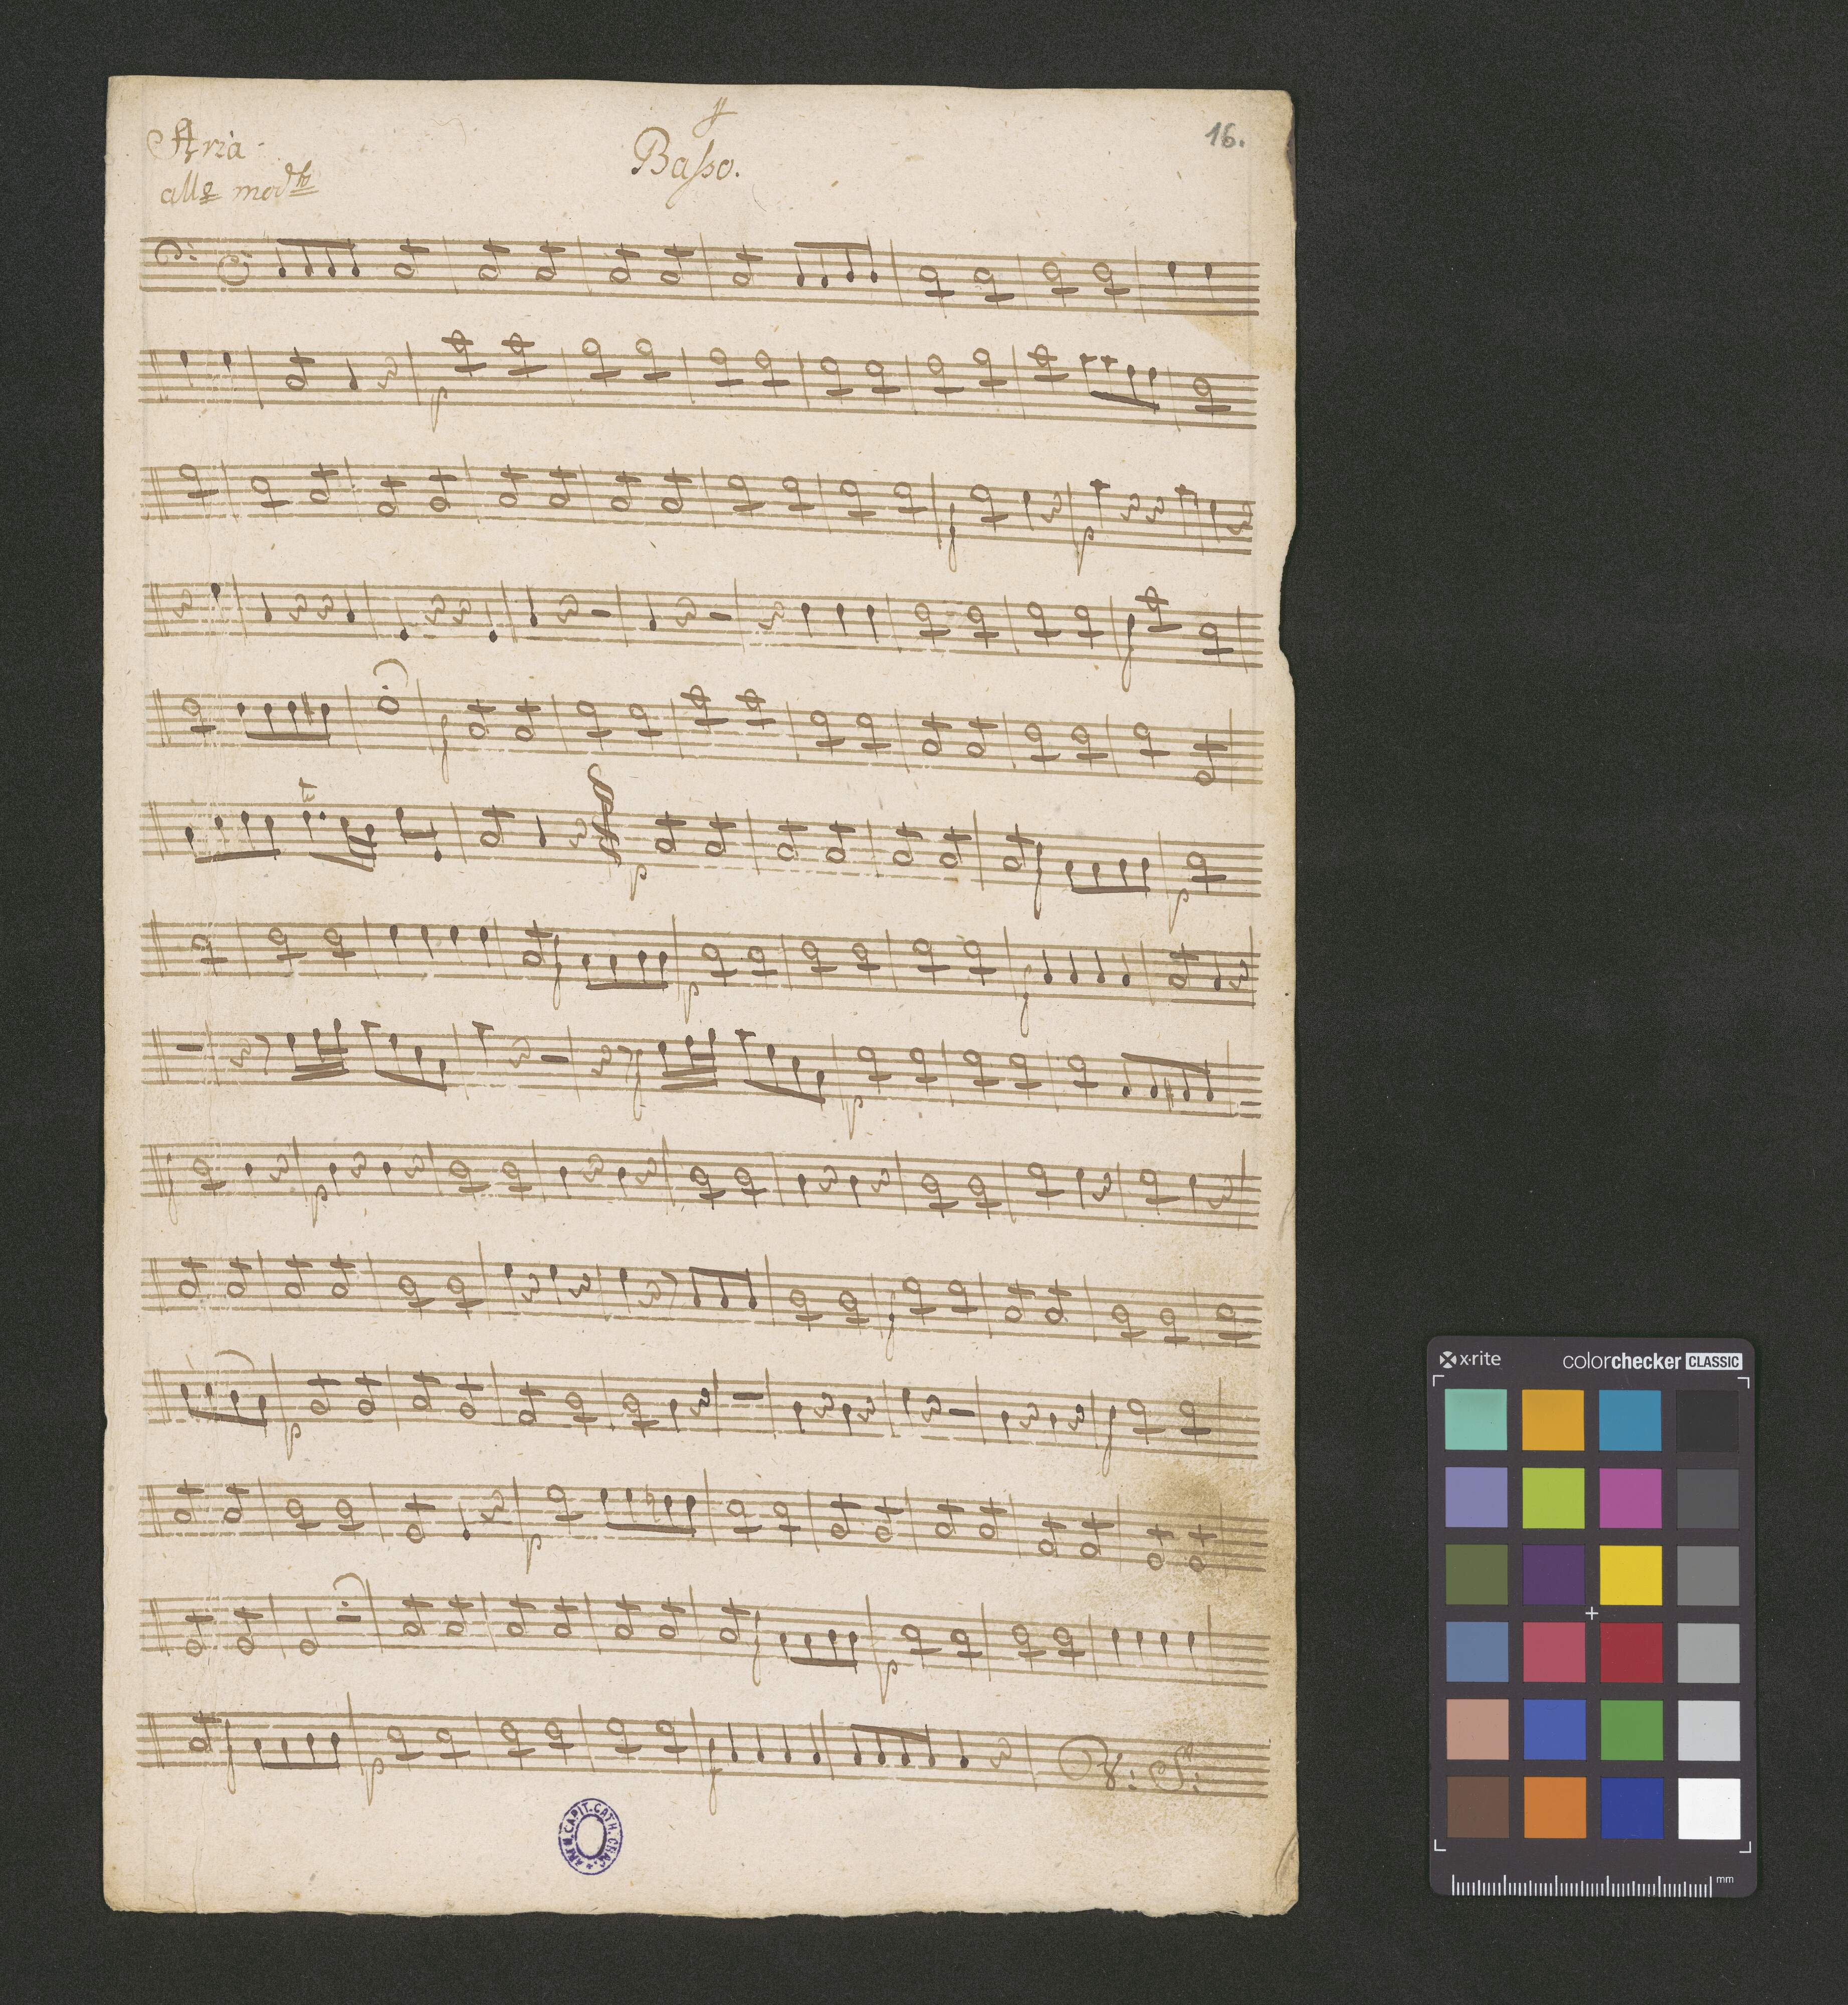 Aria
Basso.
16.
all.o mod.to
p
p
f
p
f
f
tr
p
f
p
f
p
f
f
p
f
p
f
p
f
p
f
p
f
p
ARCH. CAPIT. CATH. CRAC.
x·rite
colorchecker CLASSIC
mm